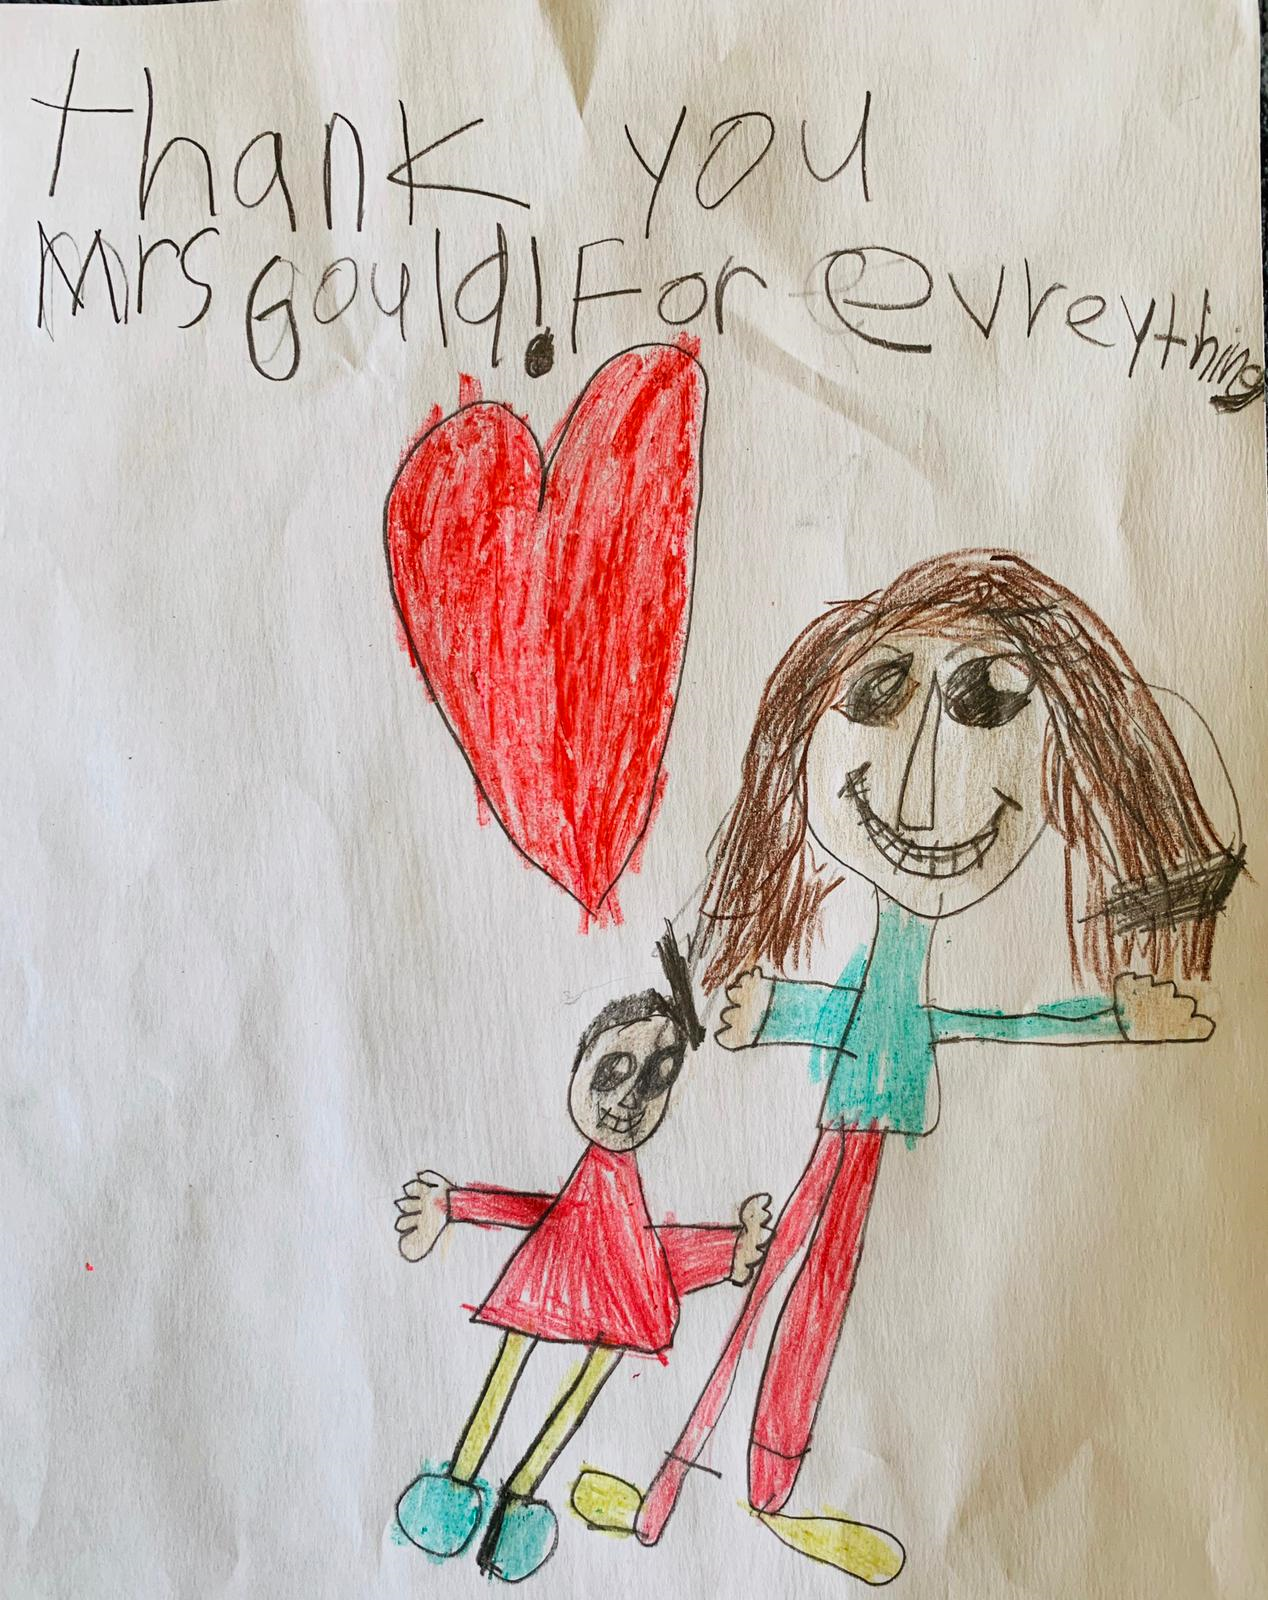 thank you
Mrs Gould! For evreything